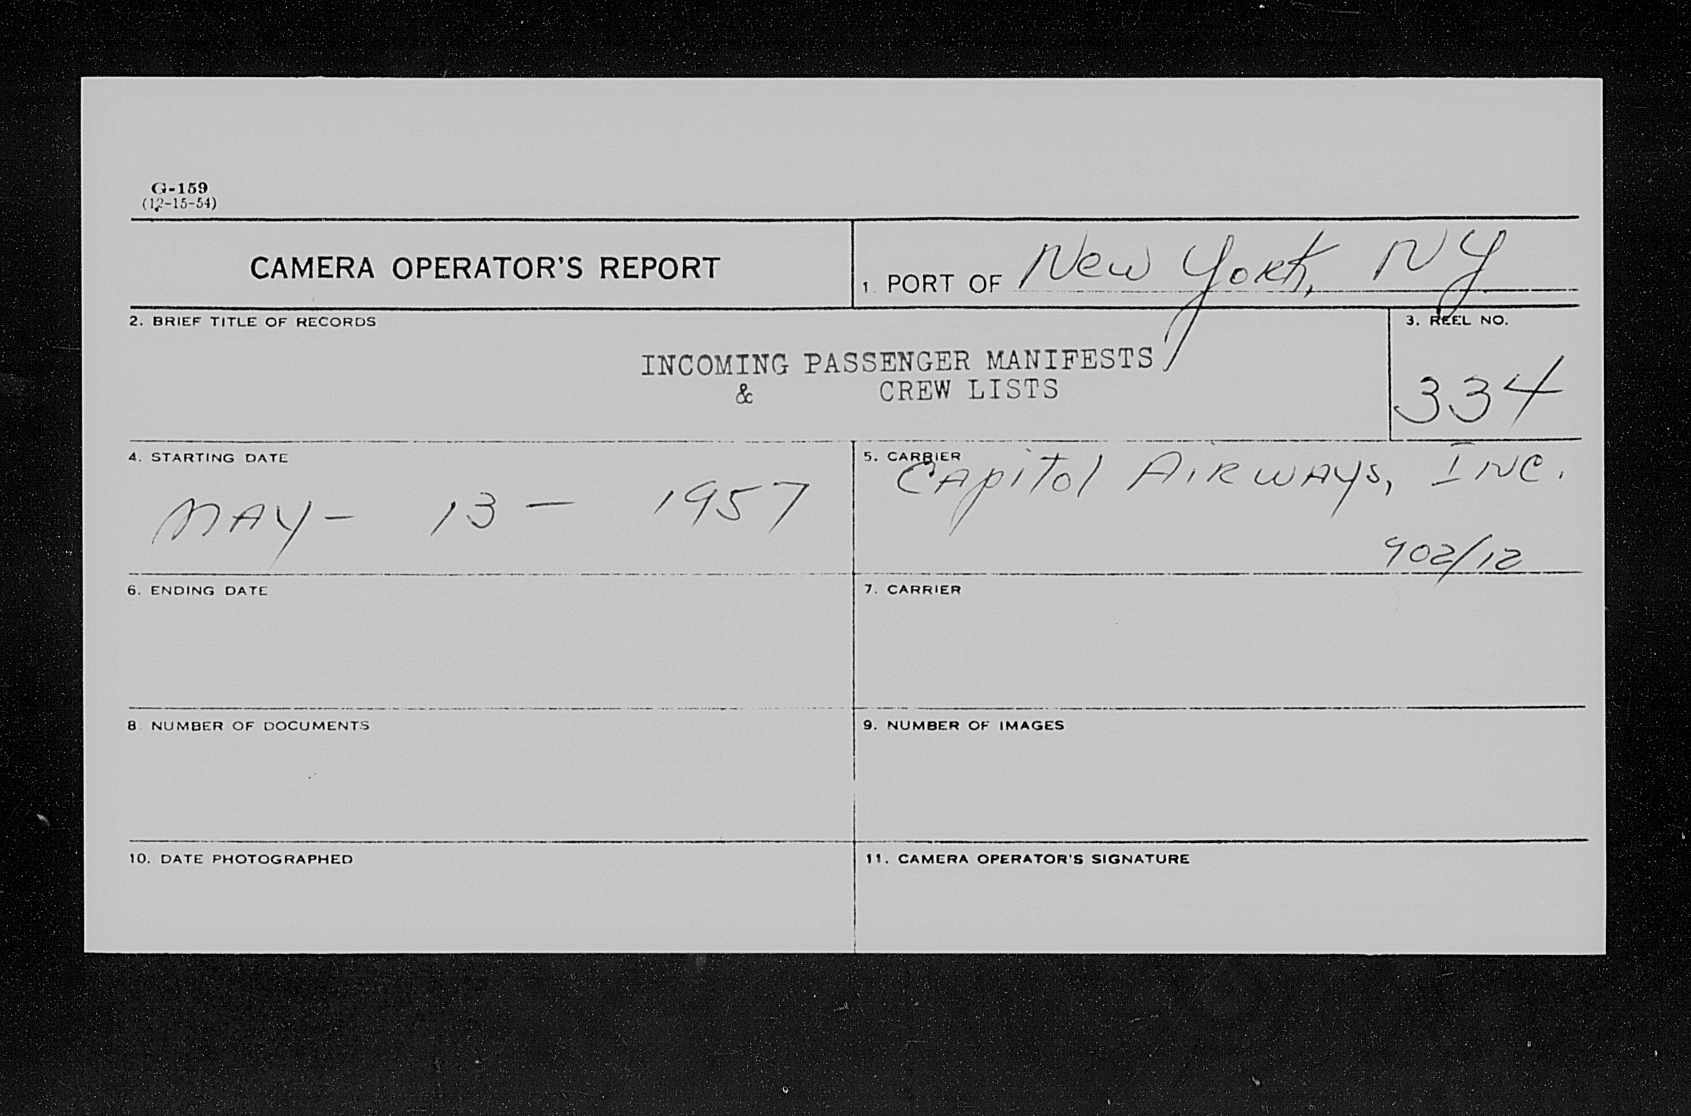 G-159
(12-15-54)
CAMERA OPERATOR'S REPORT
1. PORT OF New York, NY
2. BRIEF TITLE OF RECORDS
INCOMING PASSENGER MANIFESTS
& CREW LISTS
3. REEL NO.
334
4. STARTING DATE
MAY - 13 - 1957
5. CARRIER
Capitol Airways, Inc.
902/12
6. ENDING DATE
7. CARRIER
8. NUMBER OF DOCUMENTS
9. NUMBER OF IMAGES
10. DATE PHOTOGRAPHED
11. CAMERA OPERATOR'S SIGNATURE